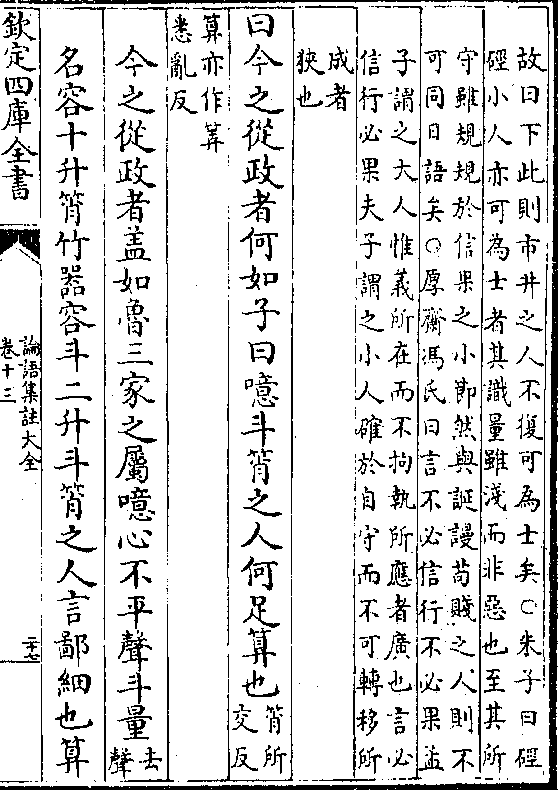 故曰下此則市井之人不復可為士矣○朱子曰硜
硜小人亦可為士者其識量雖淺而非惡也至其所
守雖規規於信果之小即然與誕謾苟賤之人則不
可同日語矣○厚齋馮氏曰言不必信行不必果孟
子謂之大人惟義所在而不拘執所應者廣也言必
信行必果夫子謂之小人確於自守而不可轉移所
成者
狹也
曰今之從政者何如子曰噫斗筲之人何足算也筲所
交反
算亦作筭
悉亂反
今之從政者盖如魯三家之屬噫心不平聲斗量去
聲
名容十升筲竹器容斗二升斗筲之人言鄙細也算
欽定四庫全書
論語集註大全
卷十三
二十七